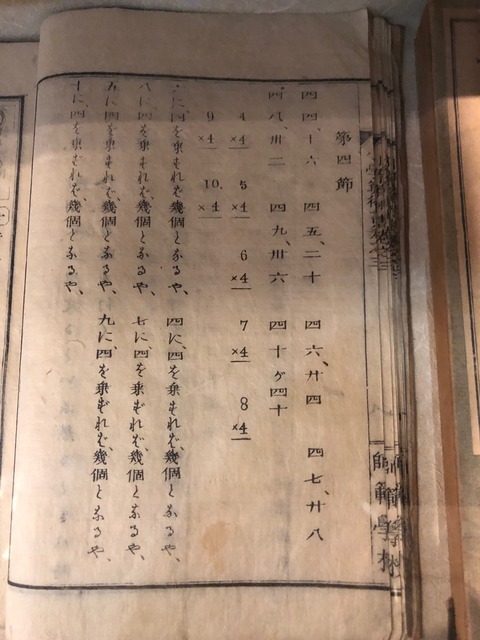 小學算術書卷之三
師範學校
第四節
四四、十六 四五、二十 四六、廿四 四七、廿八
四八、卅二 四九、卅六 四十ヶ四十
4 ×4 5 ×4 6 ×4 7 ×4 8 ×4
9 ×4 10. ×4
に、四を乗ずれば、幾個となるや、 四に、四を乗ずれば、幾個となるや、
八に、四を乗ずれば、幾個となるや、 七に、四を乗ずれば、幾個となるや、
五に、四を乗ずれば、幾個となるや、 九に、四を乗ずれば、幾個となるや、
十に、四を乗ずれば、幾個となるや、